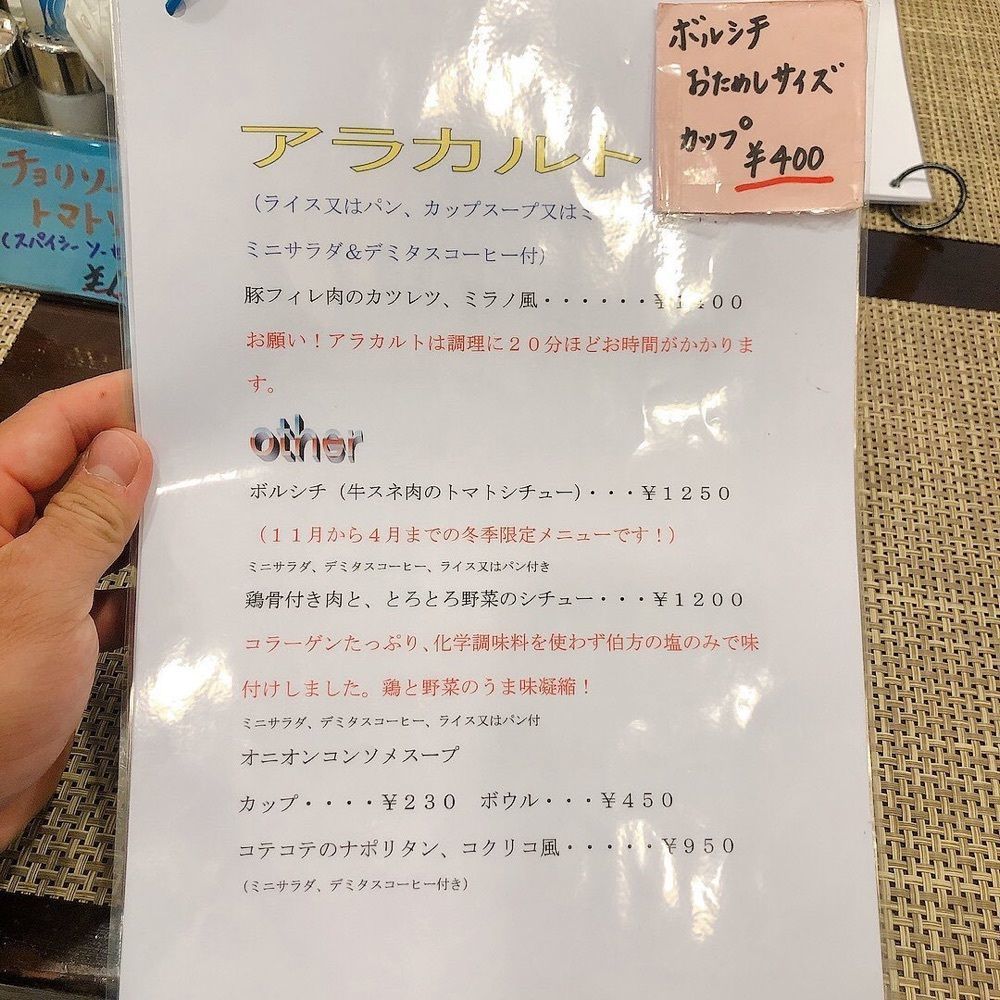 ボルシチ
おためしサイズ
カップ ¥400
チョリソー
トマト
(スパイシー ソー
アラカルト
（ライス又はパン、カップスープ又はミ
ミニサラダ＆デミタスコーヒー付）
豚フィレ肉のカツレツ、ミラノ風・・・・・・￥１４００
お願い！アラカルトは調理に２０分ほどお時間がかかりま
す。
other
ボルシチ（牛スネ肉のトマトシチュー）・・・￥１２５０
（１１月から４月までの冬季限定メニューです！）
ミニサラダ、デミタスコーヒー、ライス又はパン付き
鶏骨付き肉と、とろとろ野菜のシチュー・・・￥１２００
コラーゲンたっぷり、化学調味料を使わず伯方の塩のみで味
付けしました。鶏と野菜のうま味凝縮！
ミニサラダ、デミタスコーヒー、ライス又はパン付
オニオンコンソメスープ
カップ・・・・￥２３０　ボウル・・・￥４５０
コテコテのナポリタン、コクリコ風・・・・・￥９５０
（ミニサラダ、デミタスコーヒー付き）